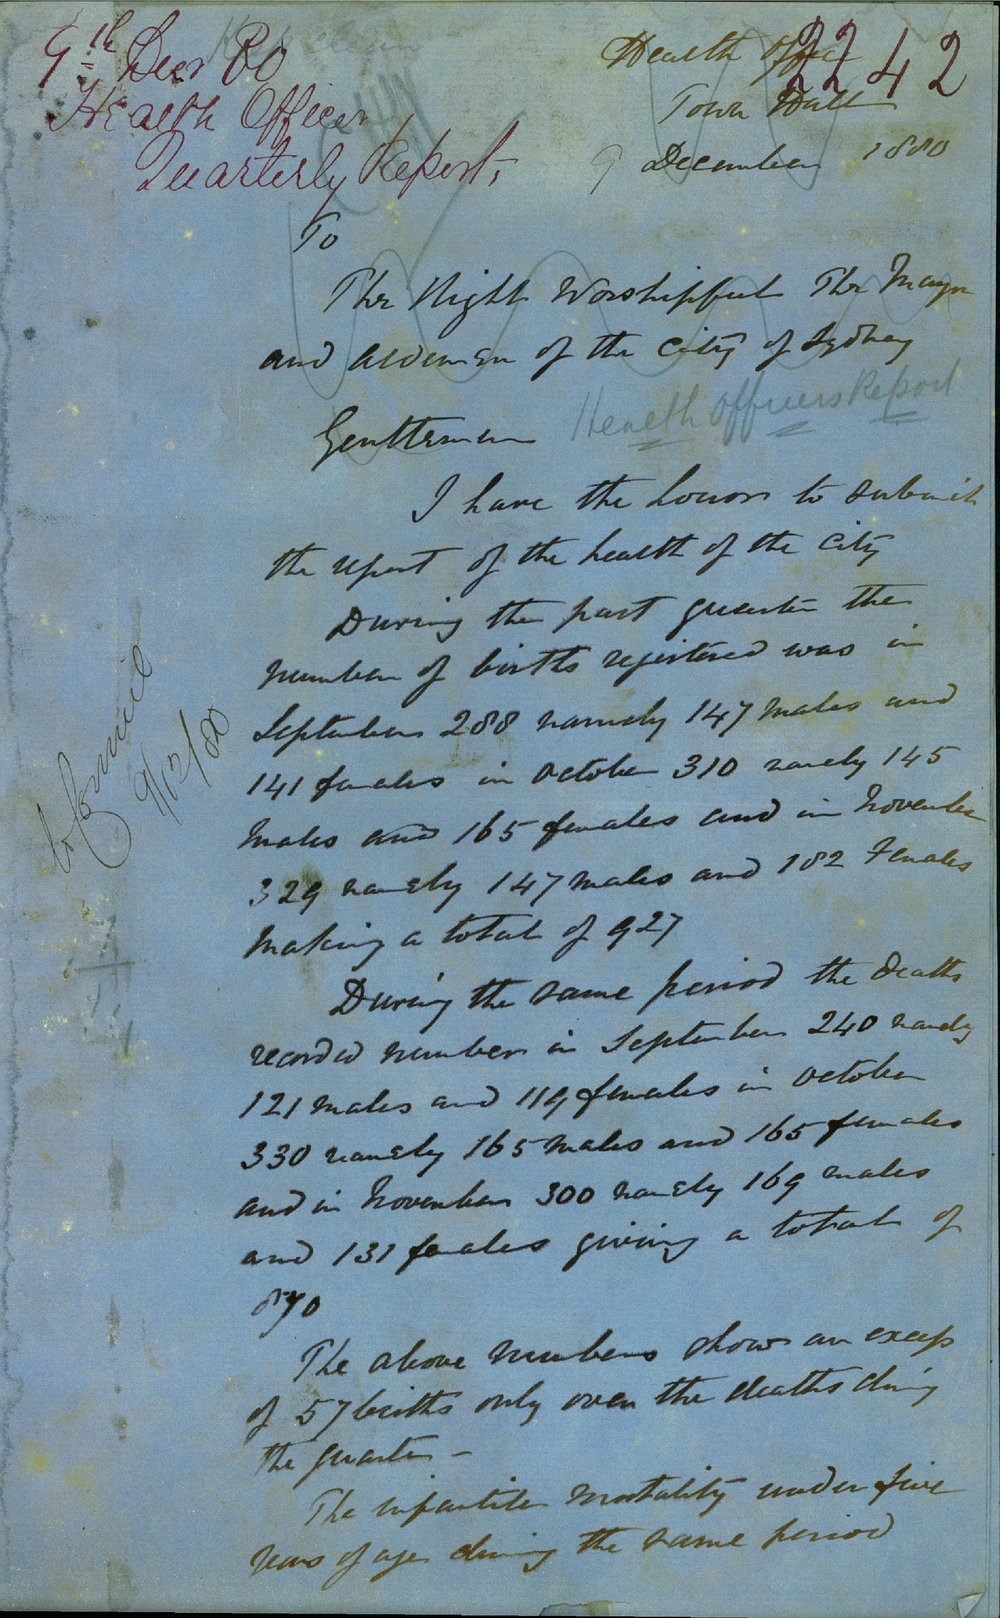 9th Decr 80
Health Officer
Quarterly Report,
2242
Health Office
Town Hall
9 December 1880
To
The Right Worshipful The Mayor
and Aldermen of the City of Sydney
Health Officers Report
Gentlemen
I have the honor to submit
the report of the health of the City
During the past quarter the
number of births registered was in
September 288 namely 147 males and
141 females in October 310 namely 145
males and 165 females and in November
329 namely 147 males and 182 Females
making a total of 927
During the same period the deaths
recorded number in September 240 namely
121 males and 119 females in October
330 namely 165 males and 165 females
and in November 300 namely 169 males
and 131 females giving a total of
870
The above numbers show an excess
of 57 births only over the deaths during
the quarter -
The infantile mortality under five
years of age during the same period
9/12/80